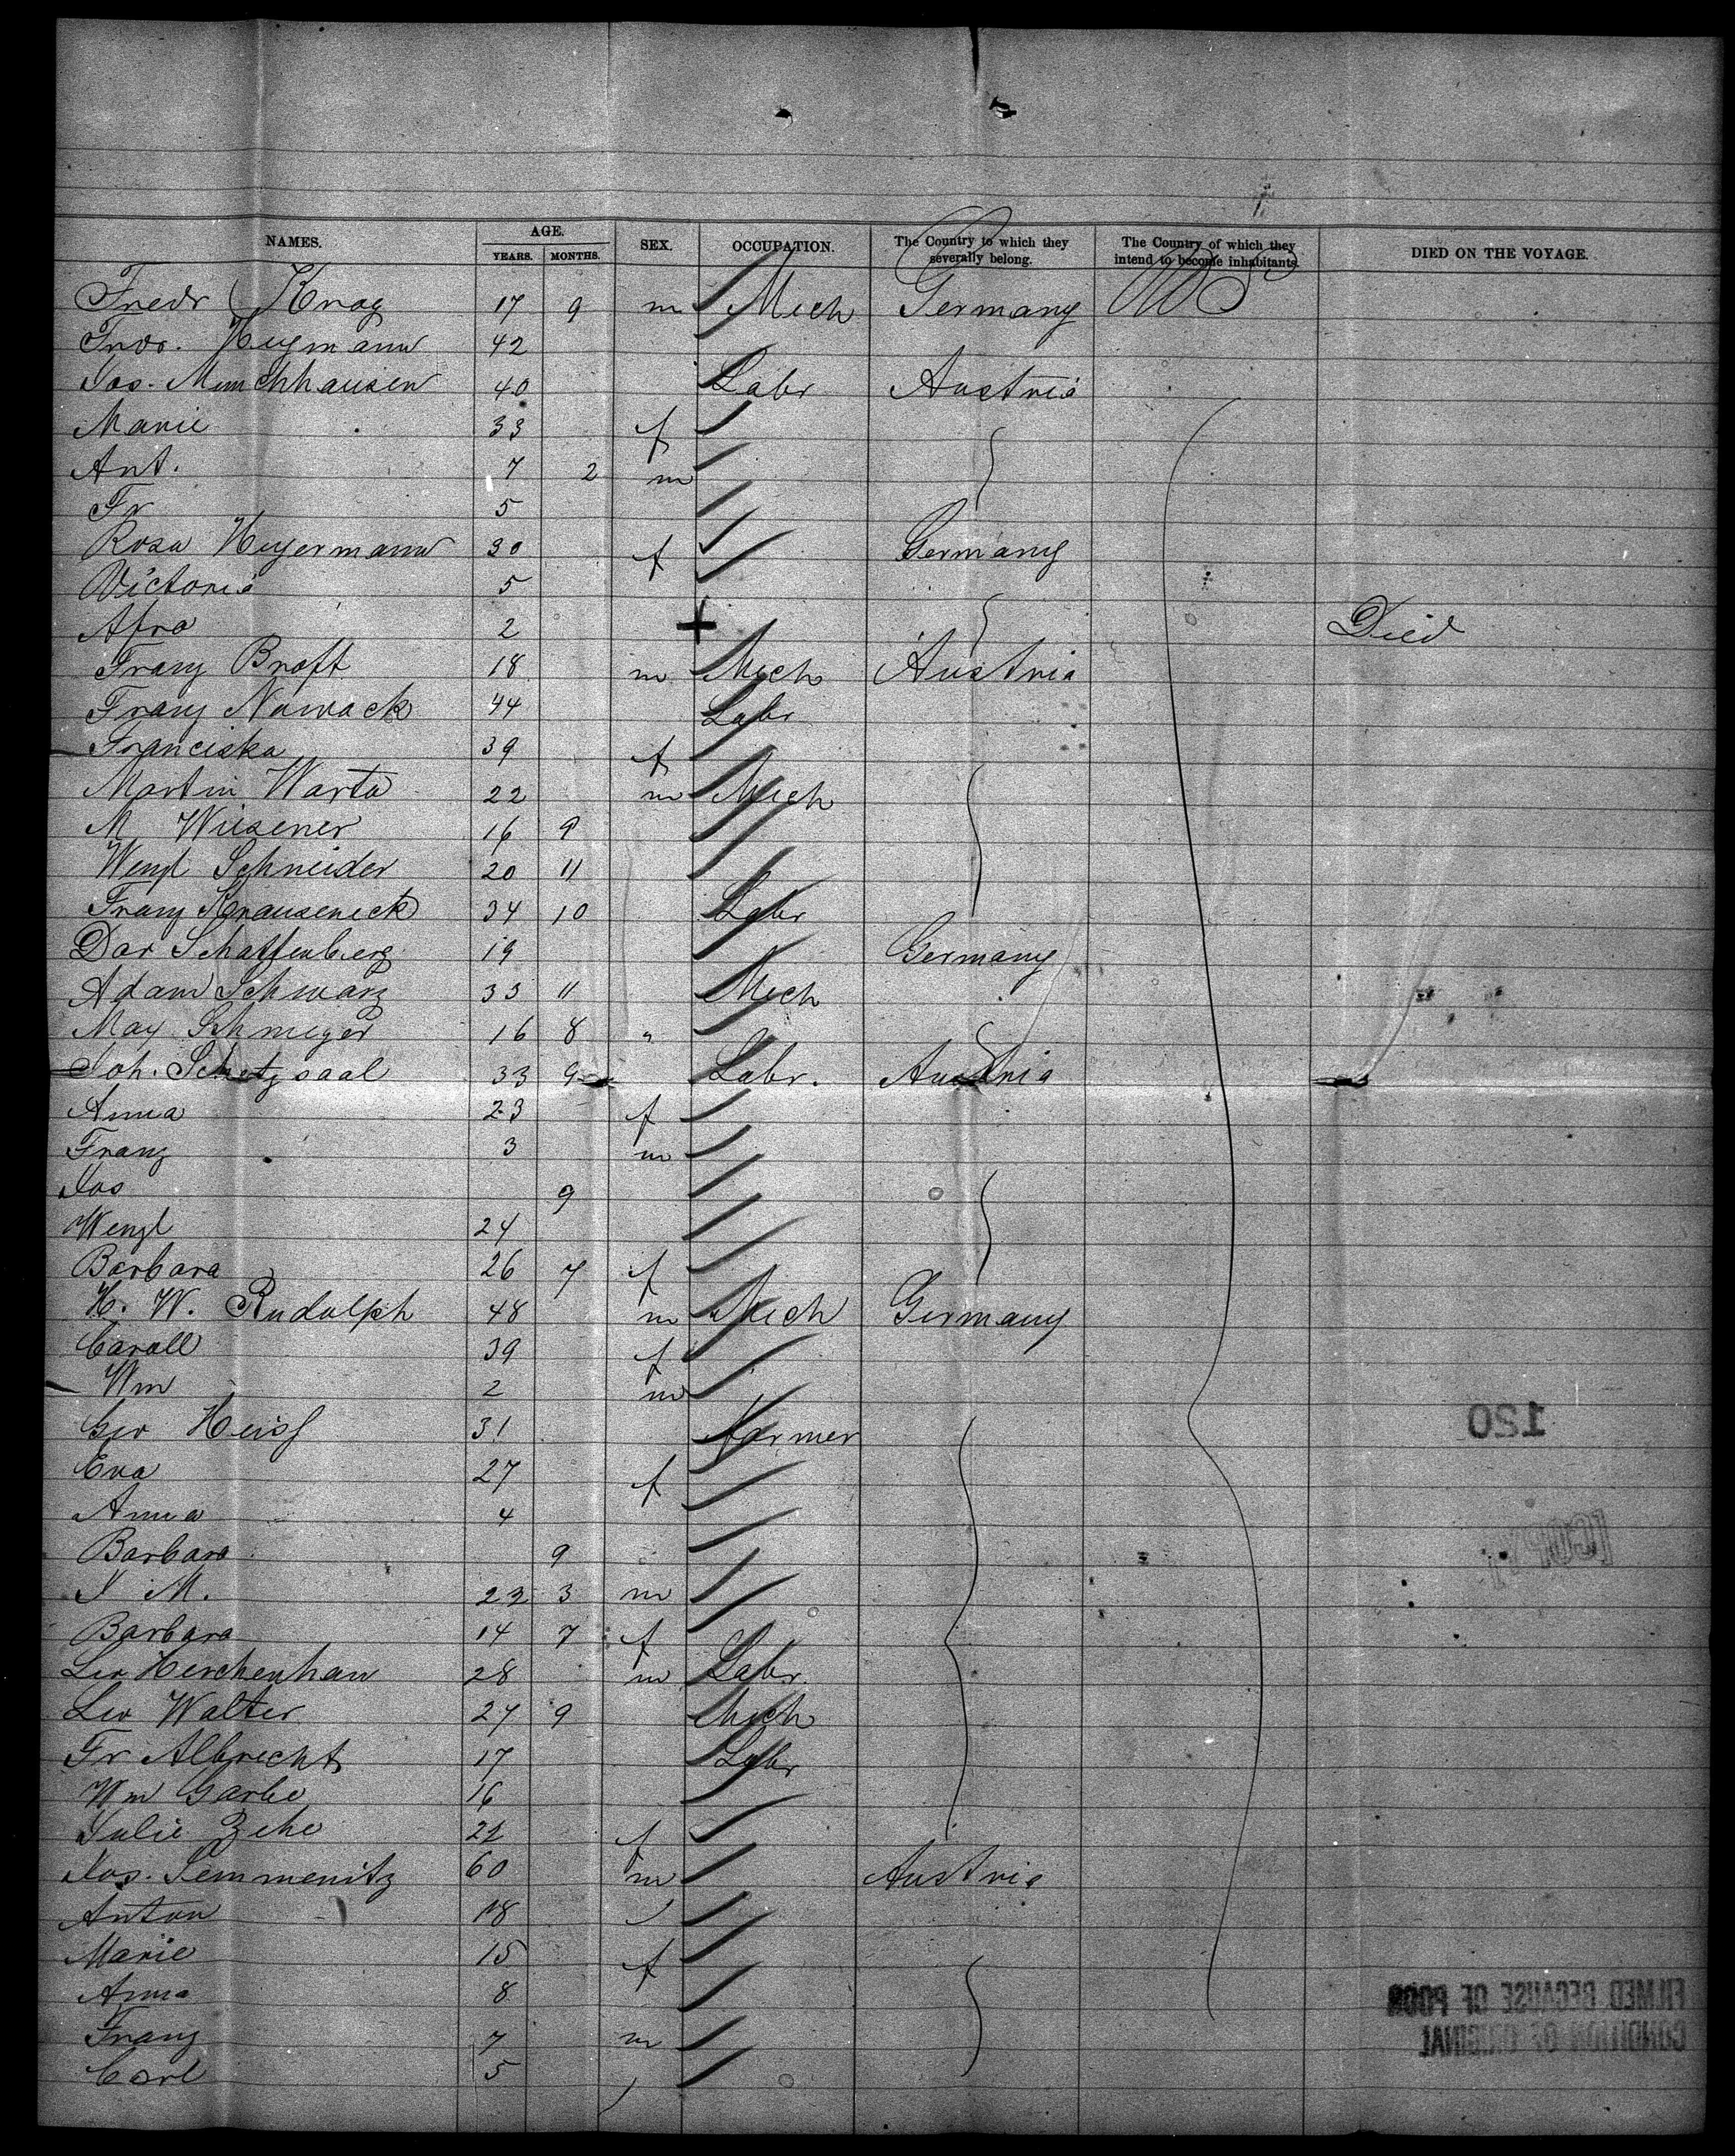 NAMES. AGE. SEX. OCCUPATION. The Country to which they severally belong. The Country of which they intend to become inhabitants. DIED ON THE VOYAGE.
YEARS. MONTHS.
Fredr Krog 17 9 m Mech Germany US
Heymann 42
Jos. Munchhausen 40 Labr Austria
Marie 33 f
Ant. 7 2 m
Fr 5
Rosa Heyermann 30 f Germany
Victoria 5
Afra 2 Died
Franz Broft 18 m Mech Austria
Franz Nowack 44 Labr
Franciska 39 f
Martin Warta 22 m Mech
M Wiesener 16 9
Wenzl Schneider 20 11
Franz Krauseneck 34 10 Labr
Schattenberg 19 Germany
Adam Schwarz 33 11 Mech
Max Schmeger 16 8 "
Joh. Schetzsaal 33 9 Labr. Austria
Anna 23 f
Franz 3 m
Jos 9
Wenzl 24
Barbara 26 7 f
H. W. Rudolph 48 m Mech Germany
Caroll 39 f
Wm 2 m
Geo Heisf 31 farmer
Eva 27 f
Anna 4
Barbara 9
J M. 23 3 m
Barbara 14 7 f
Leo Herchenhan 28 m Labr.
Leo Walter 27 9 Mech
Fr Albrecht 17 Labr
Wm Garbe 16
Julie Zehe 22 f
Jos. Semmenitz 60 m Austria
Anton 18
Marie 15 f
Anna 8
Franz 7 m
Carl 5
120
COPY
FILMED BECAUSE OF POOR
CONDITION OF ORIGINAL